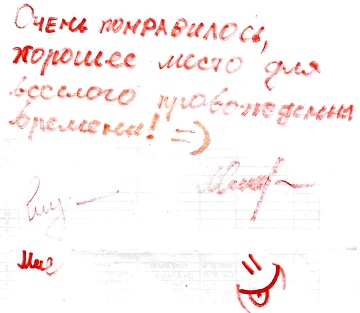 Очень понравилось,
хорошее место для
веселого провождения
времени! =)